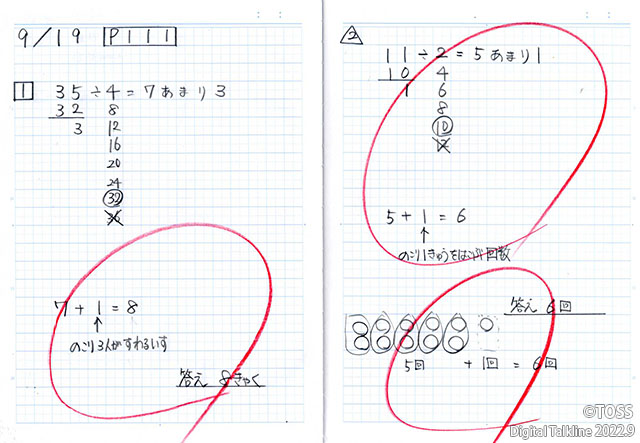 9/19 P111
1 35÷4=7あまり3
32 8
3 12
16
20
24
32
36
7+1=8
↑
のこり3人がすわるいす
答え 8きゃく
2
11÷2=5あまり1
10 4
1 6
8
10
12
5+1=6
↑
のこり1きゅうをはこぶ回数
答え 6回
5回 +1回 = 6回
©TOSS
Digital Talkline 2022.9